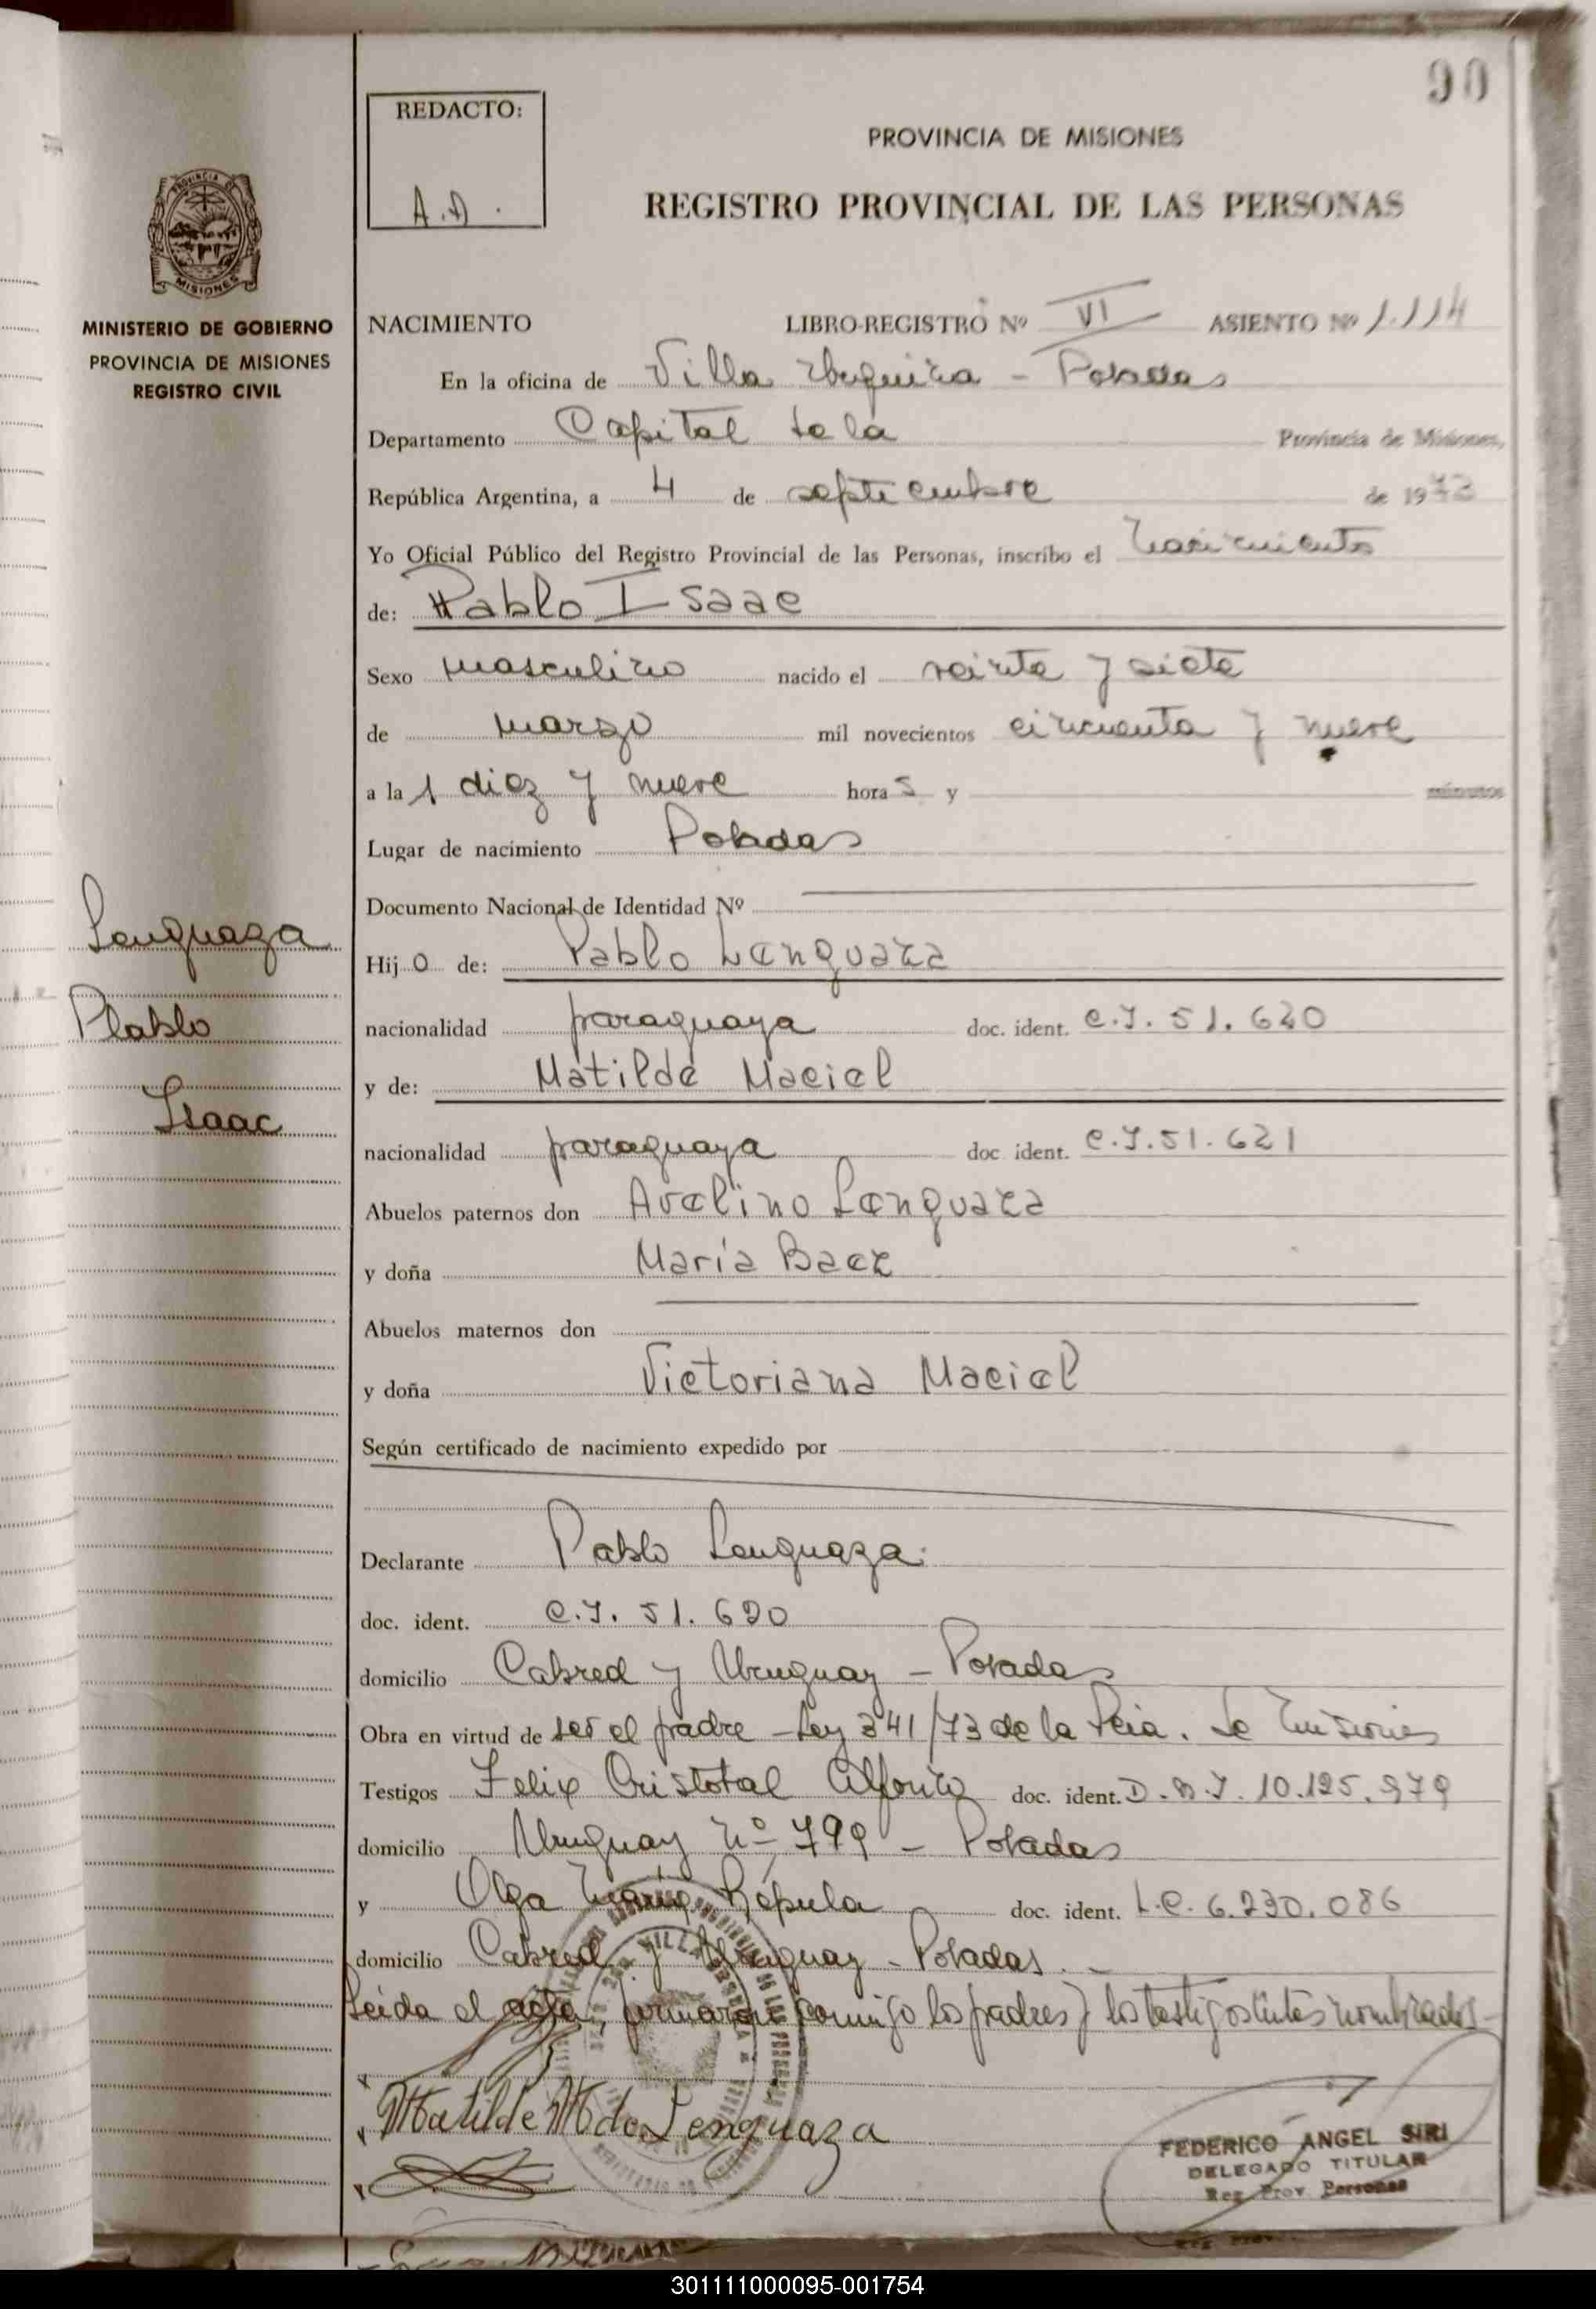 90
REDACTO:
A.A.
PROVINCIA DE MISIONES
REGISTRO PROVINCIAL DE LAS PERSONAS
MINISTERIO DE GOBIERNO
PROVINCIA DE MISIONES
REGISTRO CIVIL
NACIMIENTO LIBRO-REGISTRO Nº VI ASIENTO Nº 1.114
En la oficina de Villa Urquiza - Posadas
Departamento Capital de la Provincia de Misiones,
República Argentina, a 4 de septiembre de 1973
Yo Oficial Público del Registro Provincial de las Personas, inscribo el nacimiento
de: Pablo Isaac
Sexo masculino nacido el veinte y siete
de marzo mil novecientos cincuenta y nueve
a la s diez y nueve hora s y minutos
Lugar de nacimiento Posadas
Documento Nacional de Identidad Nº
Lenguaza
Pablo
Isaac
Hij o de: Pablo Lenguaza
nacionalidad paraguaya doc. ident. C.I. 51.620
y de: Matilde Maciel
nacionalidad paraguaya doc ident. C.I. 51.621
Abuelos paternos don Avelino Lenguaza
y doña María Baez
Abuelos maternos don
y doña Victoriana Maciel
Según certificado de nacimiento expedido por
Declarante Pablo Lenguaza.
doc. ident. C.I. 51.620
domicilio Cabred y Uruguay - Posadas
Obra en virtud de ser el padre - Ley 341/73 de la Pcia. de Misiones
Testigos Felix Cristobal doc. ident. D.N.I. 10.125.979
domicilio Uruguay nº 799 - Posadas
y Olga María Répula doc. ident. L.C. 6.230.086
domicilio Cabred y Uruguay - Posadas. -
Leída el acta, firmaron conmigo los padres y los testigos antes nombrados-
Matilde M de Lenguaza
FEDERICO ANGEL SIRI
DELEGADO TITULAR
Reg Prov Personas
301111000095-001754